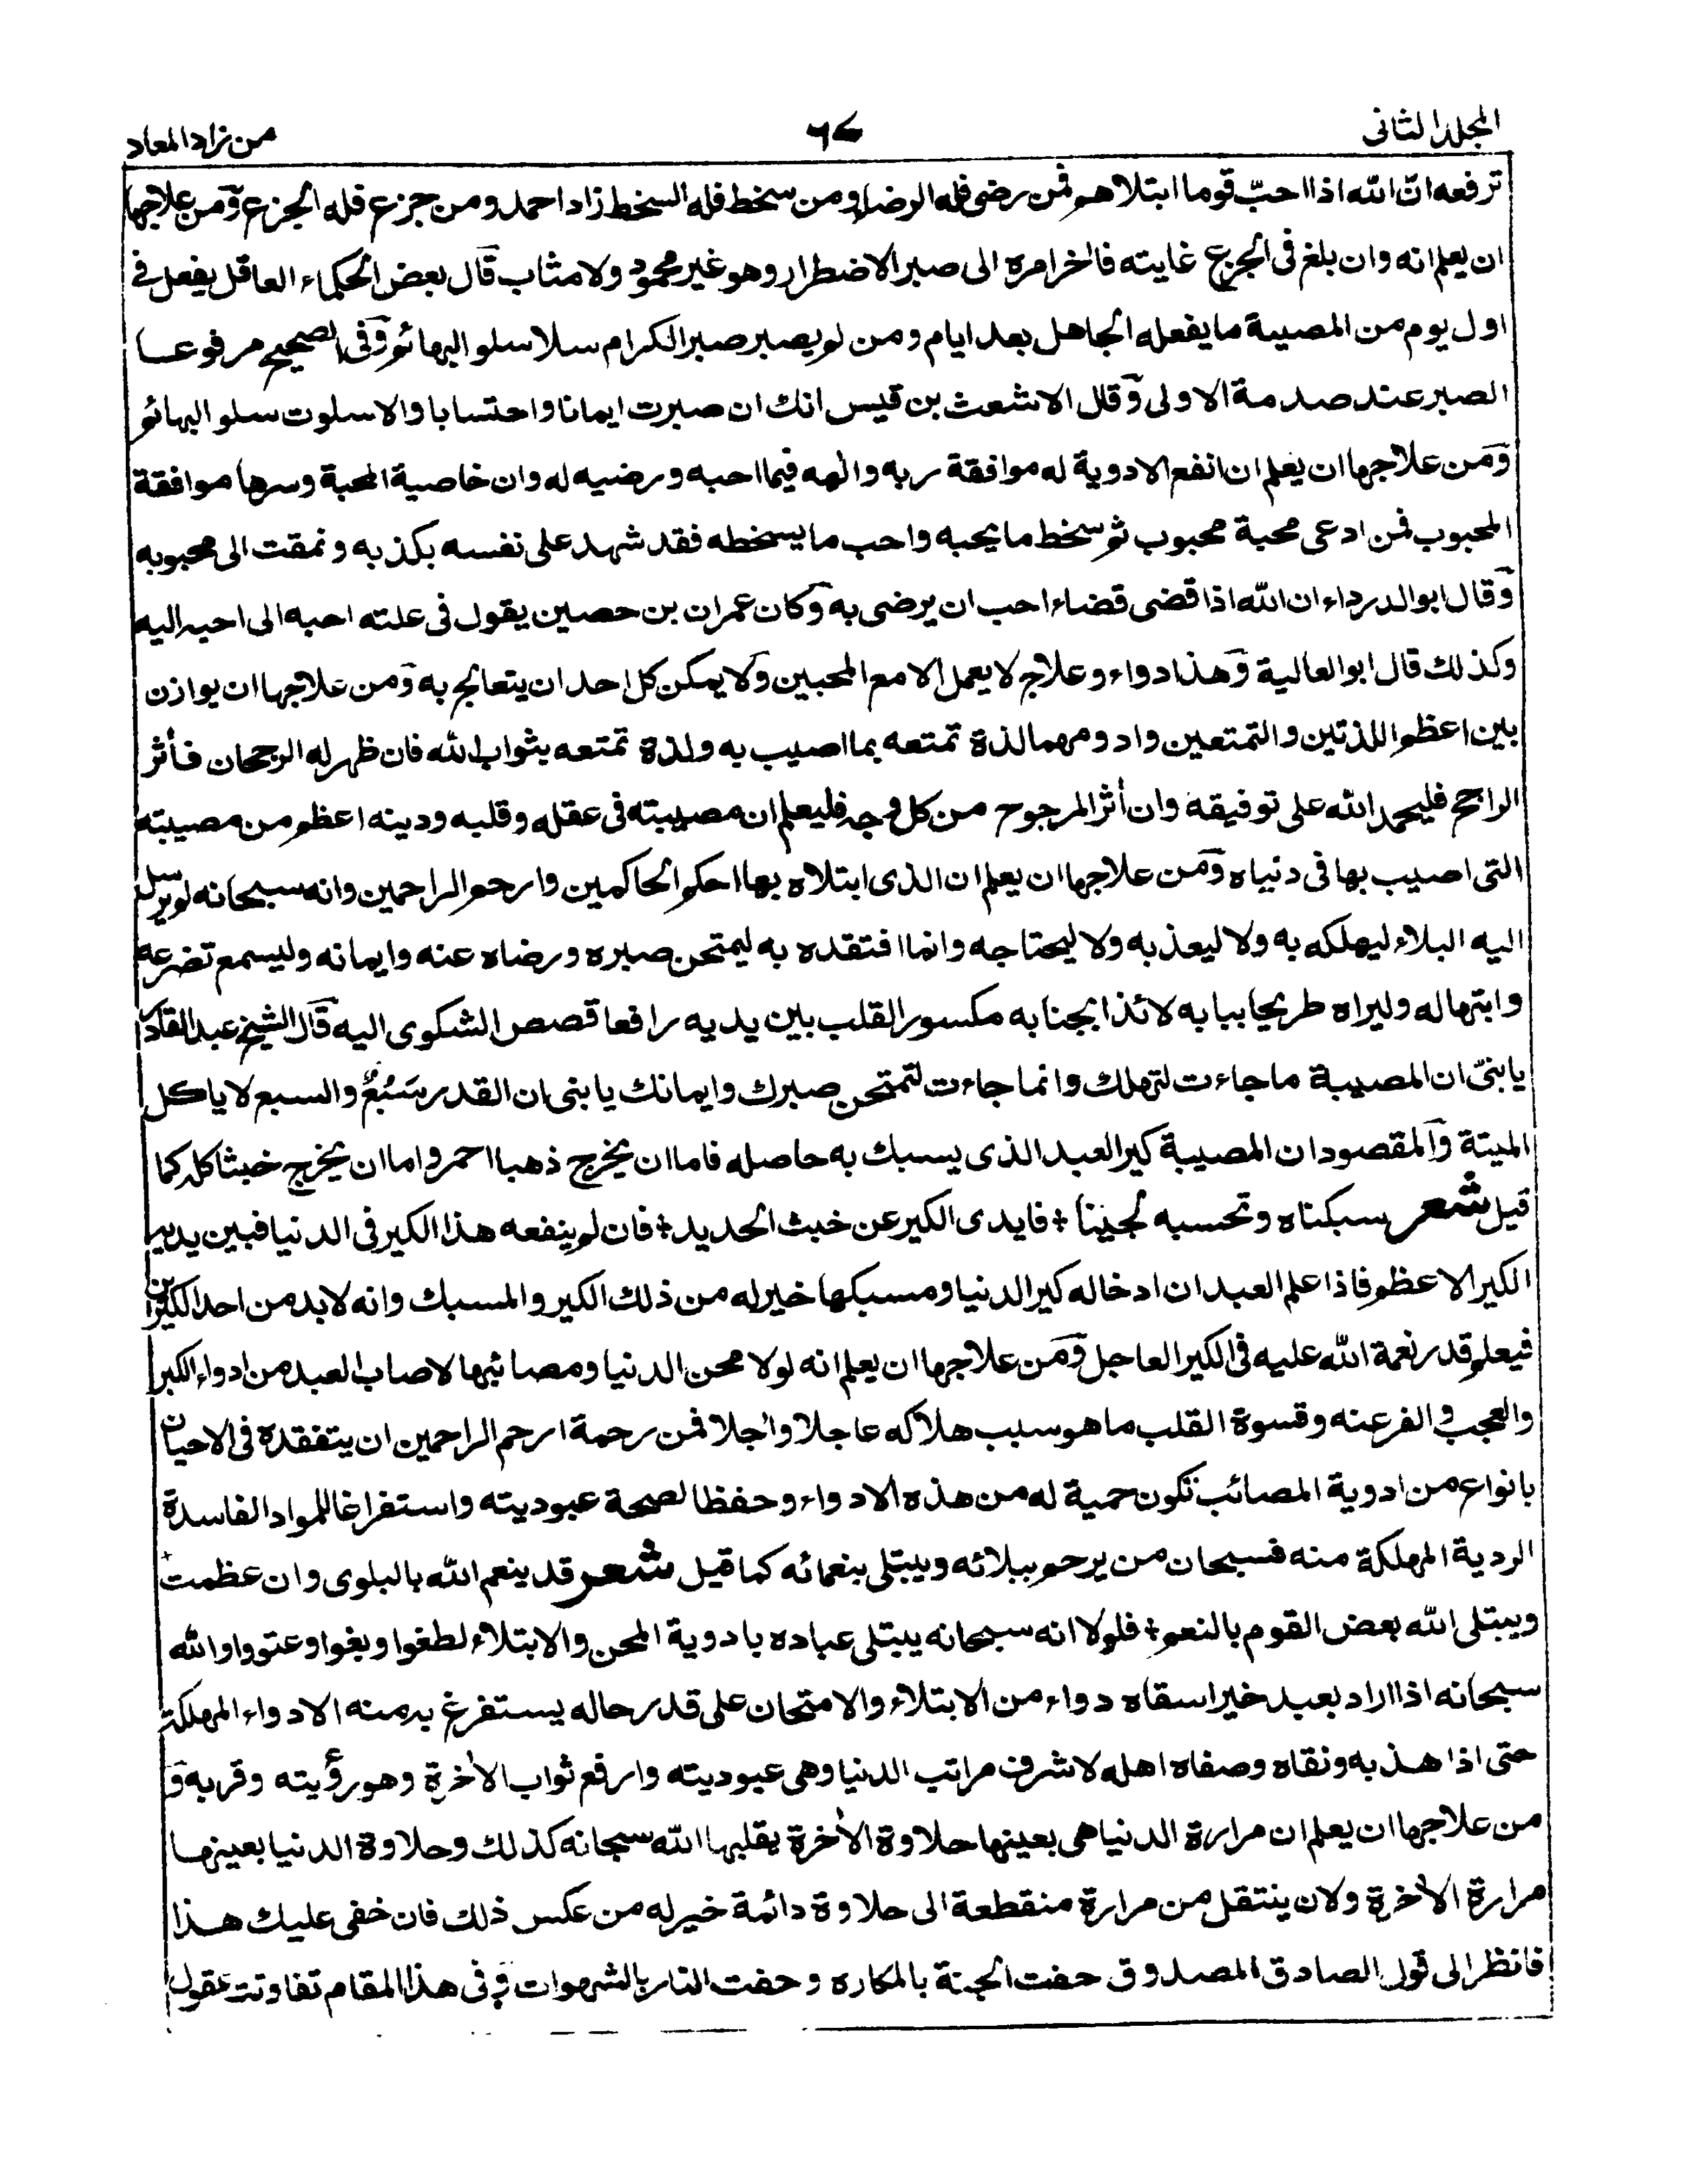 المجلد الثانى
٦٧
من زاد المعاد
ترفعه انّ الله اذا احبّ قوما ابتلاهم فمن رضى فله الرضا ومن سخط فله السخط زاد احمد ومن جزع فله الجزع ومن علاجها
ان يعلم انه وان بلغ فى الجزع غايته فاخر امره الى صبر الاضطرار وهو غير محمود ولا مثاب قال بعض الحكماء العاقل يفعل فى
اول يوم من المصيبة ما يفعله الجاهل بعد ايام ومن لم يصبر صبر الكرام سلا سلو البهائم وفى الصحيح مرفوعا
الصبر عند صدمة الاولى وقال الاشعث بن قيس انك ان صبرت ايمانا واحتسابا والا سلوت سلو البهائم
ومن علاجها ان يعلم ان انفع الادوية له موافقة ربه والهه فيما احبه ورضيه له وان خاصية المحبة وسرها موافقة
المحبوب فمن ادعى محبة محبوب ثم سخط ما يحبه واحب ما يسخطه فقد شهد على نفسه بكذبه ونمقت الى محبوبه
وقال ابو الدرداء ان الله اذا قضى قضاء احب ان يرضى به وكان عمران بن حصين يقول فى علته احبه الى احبه اليه
وكذلك قال ابو العالية وهذا دواء وعلاج لا يعمل الا مع المحبين ولا يمكن كل احد ان يتعالج به ومن علاجها ان يوازن
بين اعظم اللذتين والتمتعين وادومهما لذة تمتعه بما اصيب به ولذة تمتعه بثواب الله فان ظهر له الرجحان فأثر
الراجح فليحمد الله على توفيقه وان أثر المرجوح من كل وجه فليعلم ان مصيبته فى عقله وقلبه ودينه اعظم من مصيبته
التى اصيب بها فى دنياه ومن علاجها ان يعلم ان الذى ابتلاه بها احكم الحاكمين وارحم الراحمين وانه سبحانه لم يرسل
اليه البلاء ليهلكه به ولا ليعذبه ولا ليحتاجه وانما افتقده به ليمتحن صبره ورضاه عنه وايمانه وليسمع تضرعه
وابتهاله وليراه طريحا ببابه لائذا بجنابه مكسور القلب بين يديه رافعا قصص الشكوى اليه قال الشيخ عبد القادر
يا بنىّ ان المصيبة ما جاءت لتهلك وانما جاءت لتمتحن صبرك وايمانك يا بنى ان القدر سَبُعٌ والسبع لا ياكل
الميتة والمقصود ان المصيبة كير العبد الذى يسبك به حاصله فاما ان يخرج ذهبا احمر واما ان يخرج خبثا كله كما
قيل شعر سبكناه وتحسبه لجينا ؞ فايدى الكير عن خبث الحديد ؞ فان لم ينفعه هذا الكير فى الدنيا فبين يديه
الكير الاعظم فاذا علم العبد ان ادخاله كير الدنيا ومسبكها خير له من ذلك الكير والمسبك وانه لا بد من احد الكيرين
فيعلم قدر نعمة الله عليه فى الكير العاجل ومن علاجها ان يعلم انه لولا محن الدنيا ومصائبها لاصاب العبد من ادواء الكبر
والعجب والفرعنه وقسوة القلب ما هو سبب هلاكه عاجلا واجلا فمن رحمة ارحم الراحمين ان يتفقده فى الاحيان
بانواع من ادوية المصائب تكون حمية له من هذه الادواء وحفظا لصحة عبوديته واستفراغا للمواد الفاسدة
الردية المهلكة منه فسبحان من يرحم ببلائه ويبتلى بنعمائه كما قيل شعر قد ينعم الله بالبلوى وان عظمت ؞
ويبتلى الله بعض القوم بالنعم ؞ فلولا انه سبحانه يبتلى عباده بادوية المحن والابتلاء لطغوا وبغوا وعتووا والله
سبحانه اذا اراد بعبد خيرا سقاه دواء من الابتلاء والامتحان على قدر حاله يستفرغ به منه الادواء المهلكة
حتى اذا هذبه ونقاه وصفاه اهله لاشرف مراتب الدنيا وهى عبوديته وارفع ثواب الأخرة وهو رؤيته وقربه و
من علاجها ان يعلم ان مرارة الدنيا هى بعينها حلاوة الأخرة يقلبها الله سبحانه كذلك وحلاوة الدنيا بعينها
مرارة الأخرة ولان ينتقل من مرارة منقطعة الى حلاوة دائمة خير له من عكس ذلك فان خفى عليك هذا
فانظر الى قول الصادق المصدوق حفت الجنة بالمكاره وحفت النار بالشهوات وفى هذا المقام تفاوتت عقول